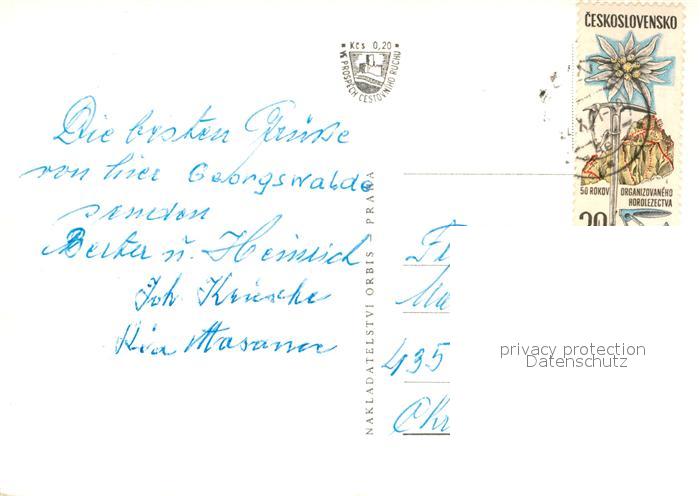 Kčs 0,20
VE PROSPĚCH CESTOVNÍHO RUCHU
ČESKOSLOVENSKO
50 ROKOV ORGANIZOVANÉHO
HOROLEZECTVA
20
Die besten Grüße
von hier Georgswalde
senden
Berta u. Heinrich
Joh.
NAKLADATELSTVÍ ORBIS PRAHA
Fr
Ma
435
privacy protection
Datenschutz